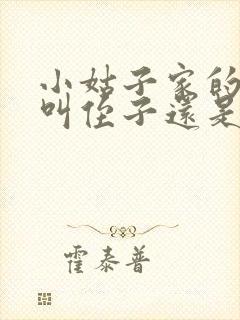 小姑子家的
叫侄子還是
霍泰普